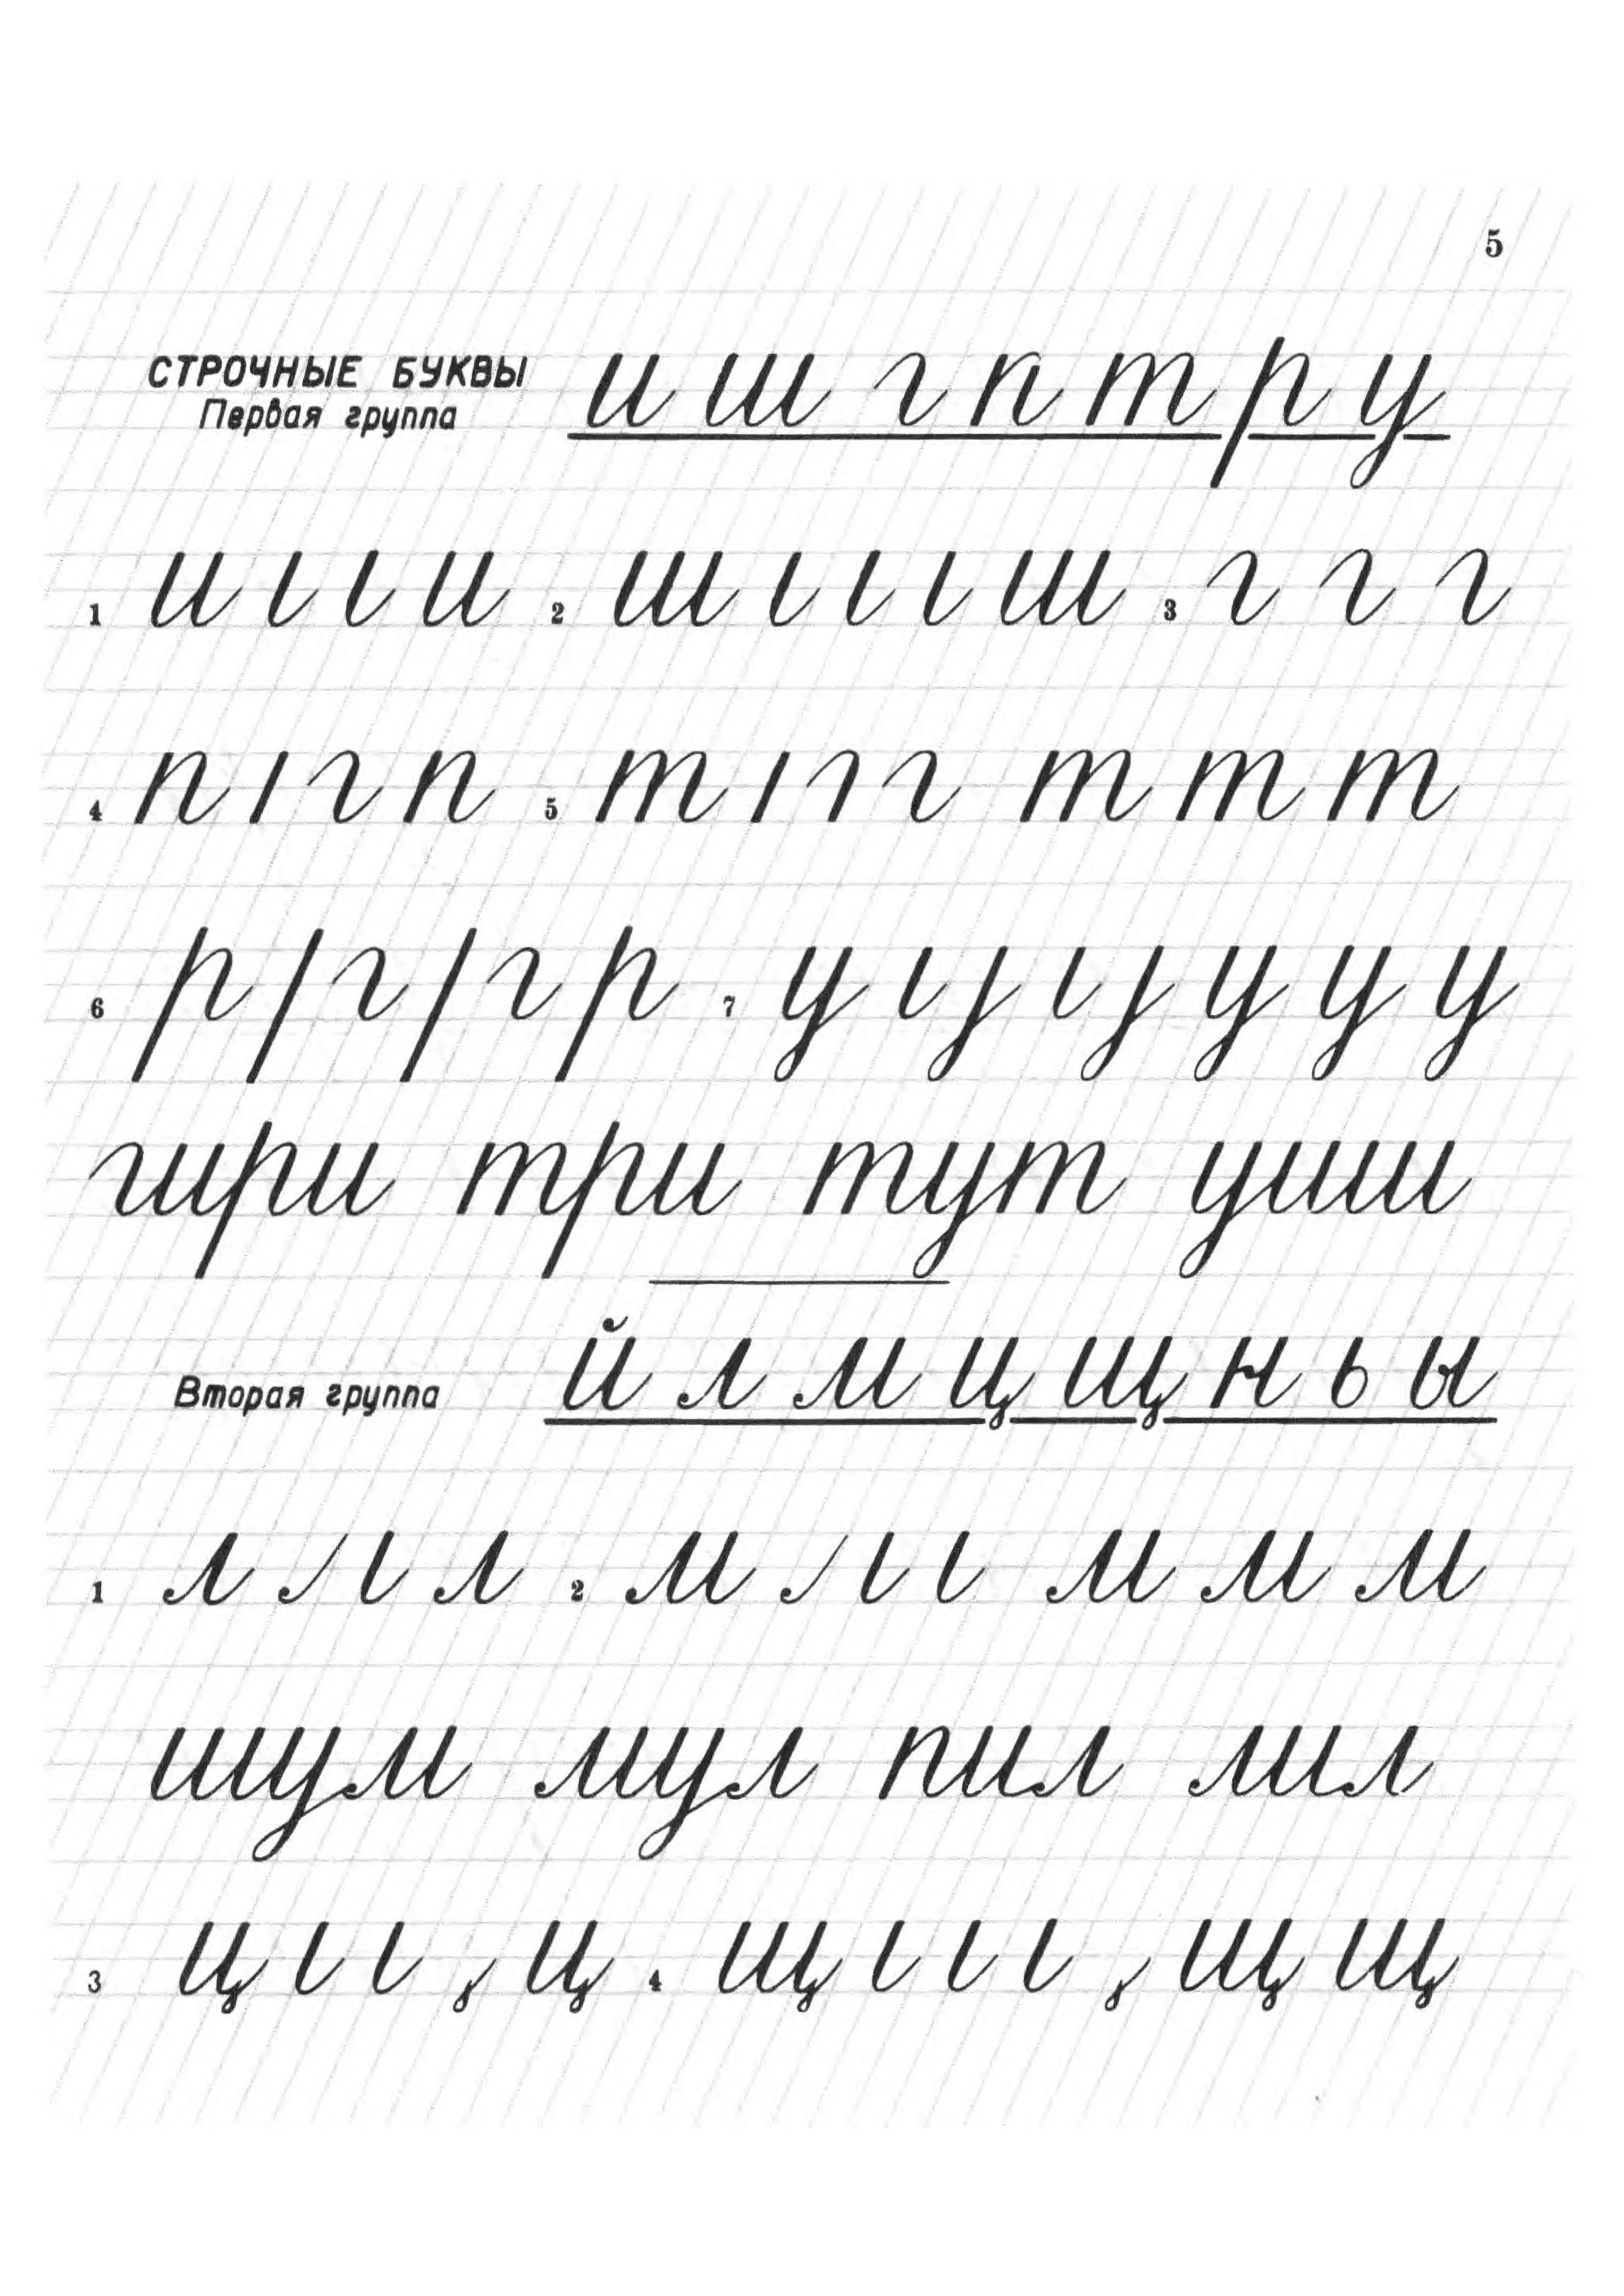 5
СТРОЧНЫЕ БУКВЫ
Первая группа
и ш г п т р у
1 и ι ι и 2 ш ι ι ι ш 3 г г г
4 п ı г п 5 т ı ı г т т т
6 р / г / г р 7 у ι ȷ ι ȷ у у у
гири три тут уши
Вторая группа
й л м ц щ н ь ы
1 л ι л 2 м ι ι м м м
шум мул пил мил
3 ц ι ι , ц 4 щ ι ι ι , щ щ